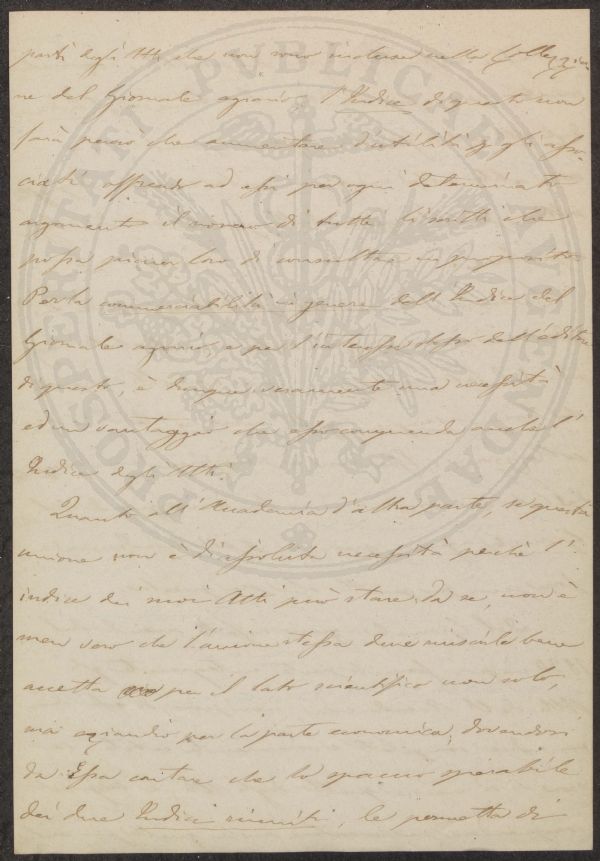 parti degli Atti che non sono inserite nella Collezzio
ne del Giornale agrario, l'Indice di questo non
farà perciò che aumentare d'utilità per gli asso
ciati offrendo ad essi per ogni determinato
argomento il novero di tutti li scritti che
possa piacer loro di consultare in proposito.
Per la commerciabilità in genere dell'Indice del
Giornale agrario, e per l'interesse stesso dell'editore
di questo, è dunque veramente una necessità
ed un vantaggio che esso comprenda anche l'
Indice degli Atti.
Quanto all'Accademia d'altra parte, se questa
unione non è di assoluta necessità perchè l'
indice dei suoi Atti può stare da se, non è
men vero che l'unione stessa deve riuscirle bene
accetta per il lato scientifico non solo,
ma eziandio per la parte economica, dovendosi
da Essa contare che lo spaccio sperabile
dei due Indici riuniti, le permetta di
PROSPERITATI PVBLICAE AVGENDAE